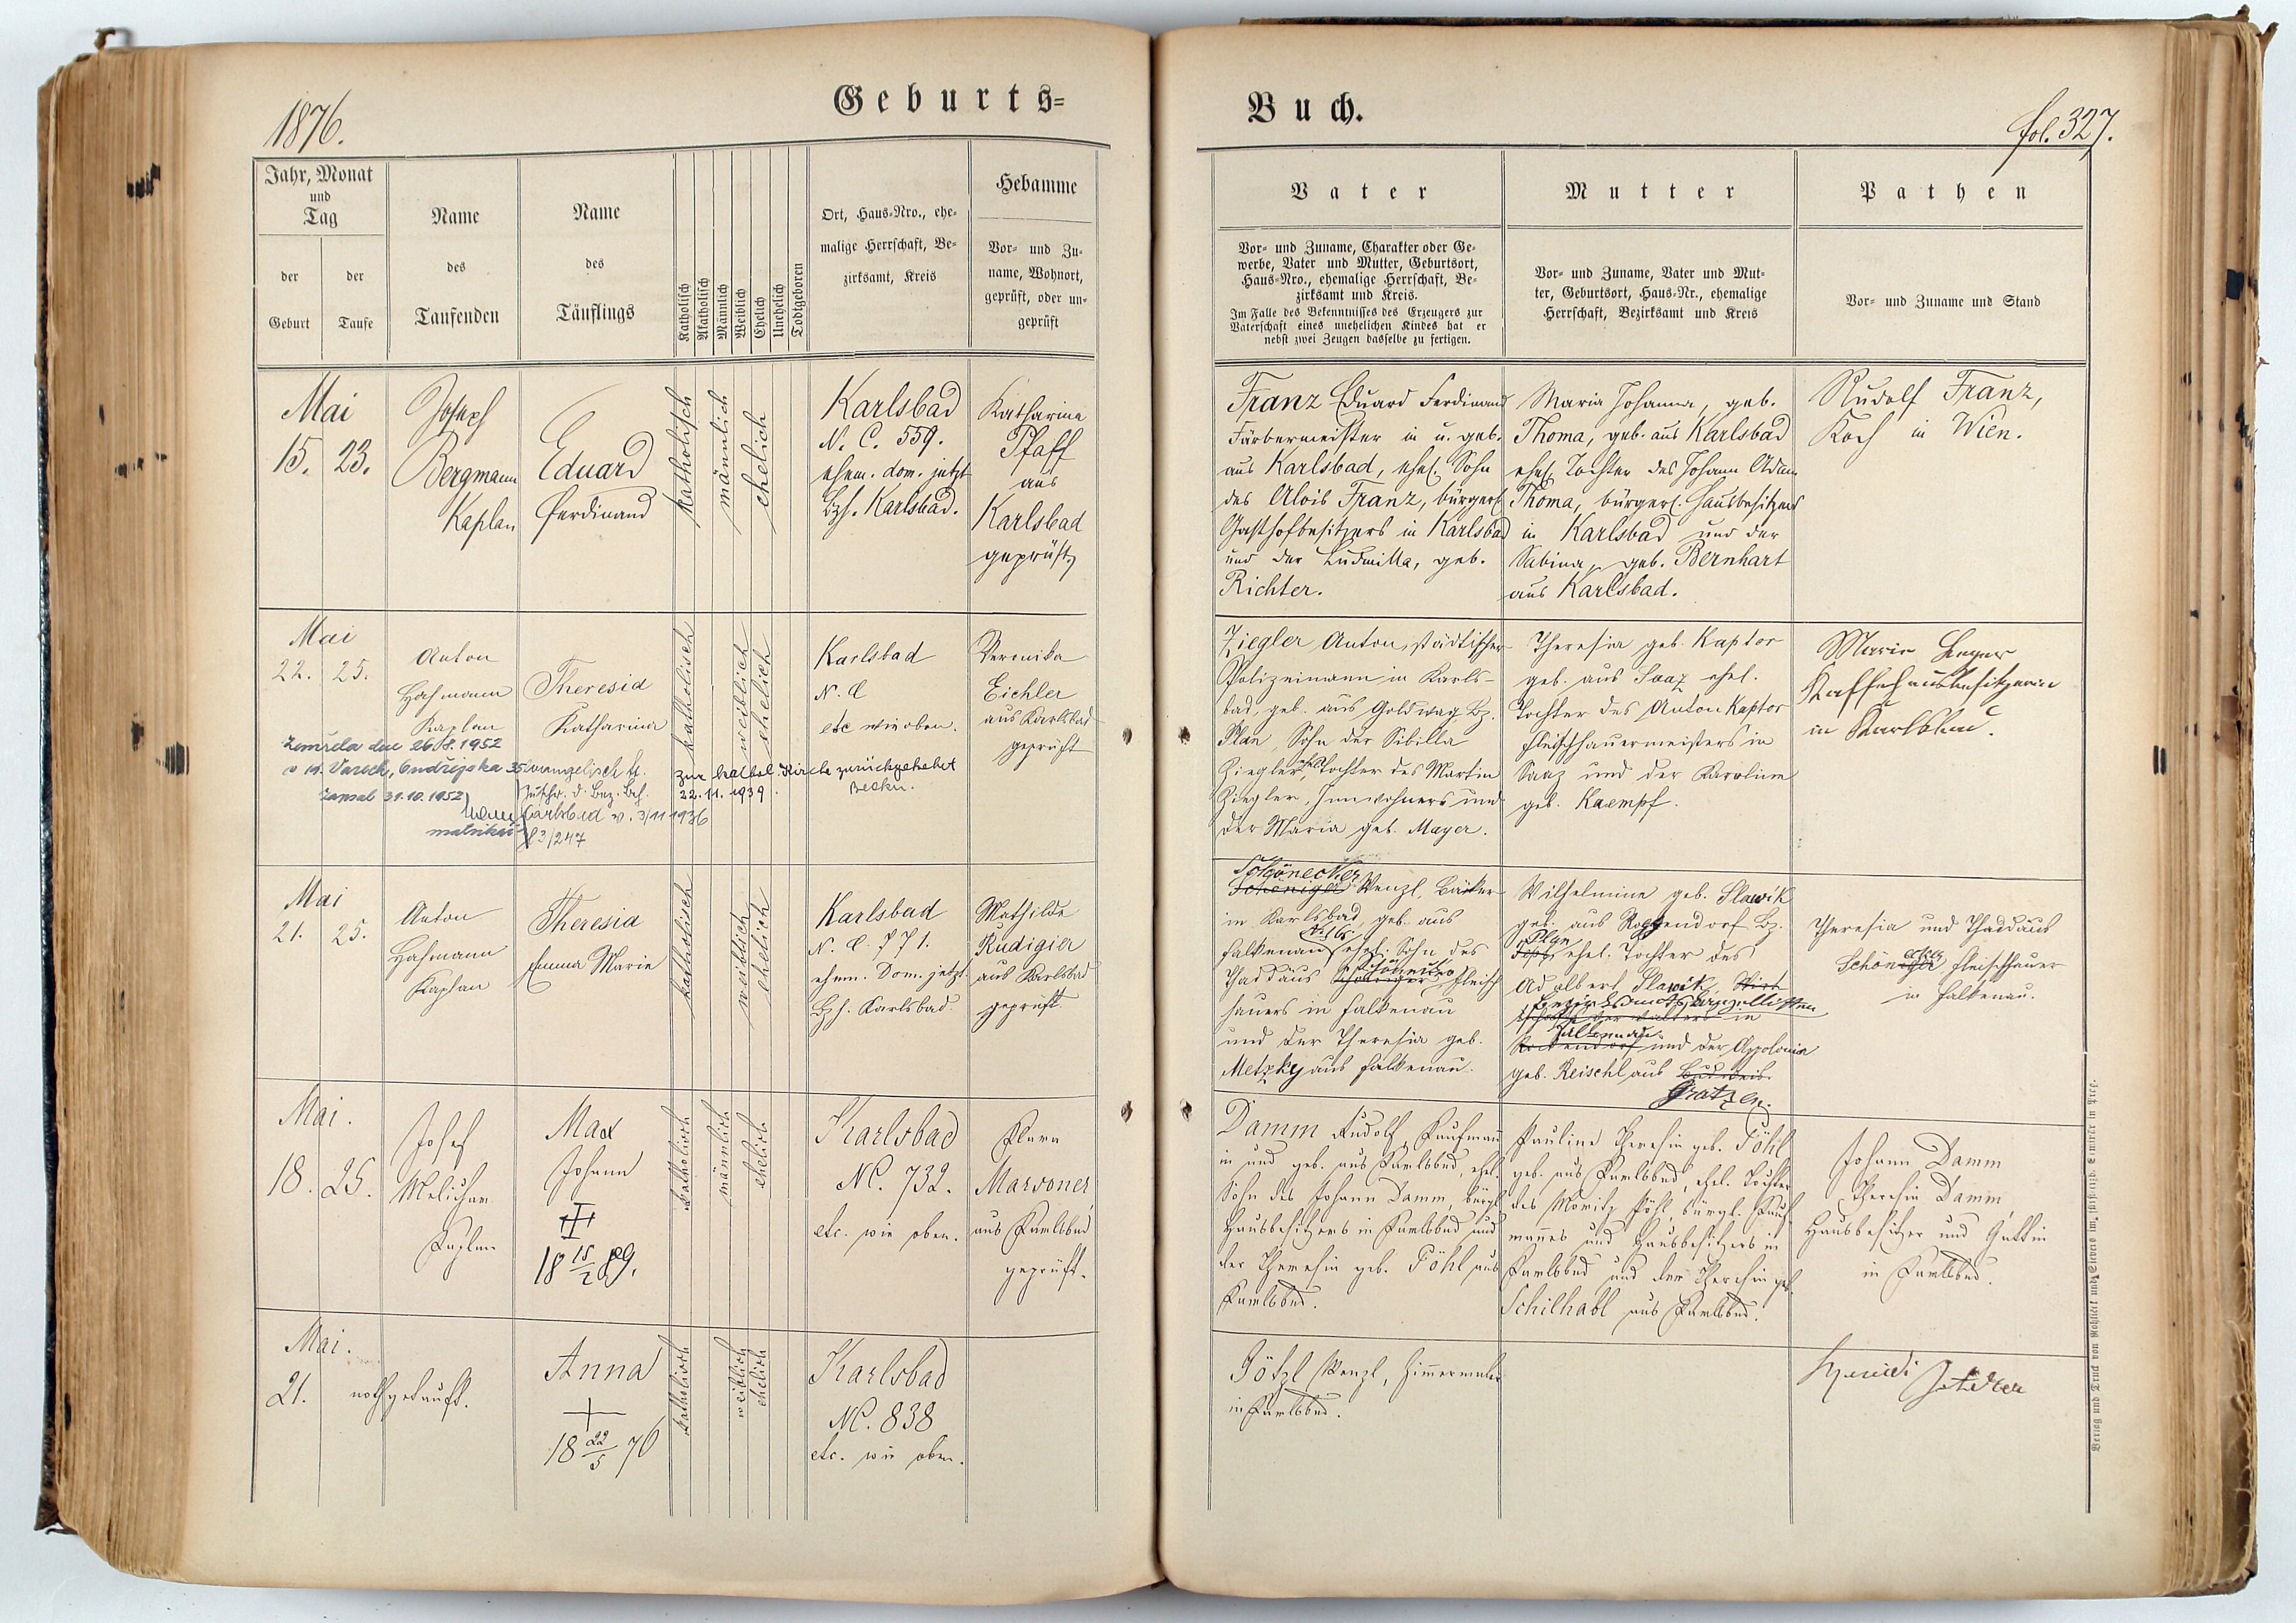 1876.
Geburts=
Jahr, Monat
und
Tag
der
Geburt
der
Taufe
Name
des
Taufenden
Name
des
Täuflings
Katholisch
Akatholisch
Männlich
Weiblich
Ehelich
Unehelich
Todtgeboren
Ort, Haus=Nro., ehe=
malige Herrschaft, Be=
zirksamt, Kreis
Hebamme
Vor= und Zu=
name, Wohnort,
geprüft, oder un=
geprüft
Mai
15. 23.
Joseph
Bergmann
Kaplan
Eduard
Ferdinand
katholisch
männlich
ehelich
Karlsbad
N. C. 559.
ehem. dom. jetzt
Bzh. Karlsbad.
Katharina
Pfaff
aus
Karlsbad
geprüft
Mai
22. 25.
Anton
Hahmann
Kaplan
Theresia
Katharina
katholisch
weiblich
ehelich
Karlsbad
N. C
etc wie oben.
Veronika
Eichler
aus Karlsbad
geprüft
Zemřela dne 26.8.1952
evangelisch lt.
Zuschr. d. Bez. Beh.
Karlsbad v. 3/11 1936
3/247
zur kathol. Kirche zurückgekehrt
22. 11. 1939.
Zapsal 31.10.1952
Mai
21. 25.
Anton
Hahmann
Kaplan
Theresia
Emma Marie
katholisch
weiblich
ehelich
Karlsbad
N. C. 771.
ehem. Dom. jetzt
Bzh. Karlsbad.
Mathilde
Rudigier
aus Karlsbad
geprüft
Mai.
18. 25.
Josef
Melichar
Kaplan
Max
Johann
18 15/2 89.
katholisch
männlich
ehelich
Karlsbad
NC. 732.
etc. wie oben.
Clara
Marsoner
aus Karlsbad
geprüft.
Mai.
21.
nothgetauft.
Anna
18 22/5 76
katholisch
weiblich
ehelich
Karlsbad
NC. 838
etc. wie oben.
Buch.
fol. 327.
Vater
Vor= und Zuname, Charakter oder Ge=
werbe, Vater und Mutter, Geburtsort,
Haus=Nro., ehemalige Herrschaft, Be=
zirksamt und Kreis.
Im Falle des Bekenntnisses des Erzeugers zur
Vaterschaft eines unehelichen Kindes hat er
nebst zwei Zeugen dasselbe zu fertigen.
Mutter
Vor= und Zuname, Vater und Mut=
ter, Geburtsort, Haus=Nr., ehemalige
Herrschaft, Bezirksamt und Kreis
Pathen
Vor= und Zuname und Stand
Franz Eduard Ferdinand
Färbermeister in u. geb.
aus Karlsbad, ehel. Sohn
des Alois Franz, bürgerl.
Gasthofbesitzers in Karlsbad
und der Ludmilla, geb.
Richter.
Maria Johanna, geb.
Thoma, geb. aus Karlsbad
ehel. Tochter des Johann Adam
Thoma, bürgerl. Hausbesitzers
in Karlsbad und der
Sabina, geb. Bernhart
aus Karlsbad.
Rudolf Franz,
Koch in Wien.
Ziegler Anton, städtischer
Polizeimann in Karls-
bad, geb. aus Goldwag Bz.
Plan, Sohn der Sibilla
Ziegler, Tochter des Martin
Ziegler, Innwohners und
der Maria geb. Mayer.
Theresia geb. Kaptor
geb. aus Saaz ehel.
Tochter des Anton Kaptor
Fleischhauermeisters in
Saaz und der Karoline
geb. Kaempf.
Marie
Kaffehausbesitzerin
in Karlsbad.
Schönecker
Wenzl, Bäcker
in Karlsbad, geb. aus
Falkenau ehel. Sohn des
Thaddäus Schönecker Fleisch
hauers in Falkenau
und der Theresia geb.
Metzky aus Falkenau.
Wilhelmine geb. Slawik
geb. aus
Plan
ehel. Tochter des
Adalbert Slawik,
Bezirksamts
in
Falkenau
und der Appolonia
geb. Reischl aus
Gratzen.
Theresia und Thaddäus
Schönecker Fleischhauer
in Falkenau.
Damm Rudolf, Kaufmann
in und geb. aus Karlsbad, ehel.
Sohn des Johann Damm, bürgl.
Hausbesitzers in Karlsbad und
der Theresia geb. Pöhl aus
Karlsbad.
Pauline Theresia geb. Pöhl
geb. aus Karlsbad, ehel. Tochter
des Moritz Pöhl, bürgl. Kauf
mannes und Hausbesitzers in
Karlsbad und der Theresia geb.
Schilhabl aus Karlsbad.
Johann Damm
Theresia Damm,
Hausbesitzer und Gattin
in Karlsbad.
Götzl Wenzl, Zimmermaler
in Karlsbad.